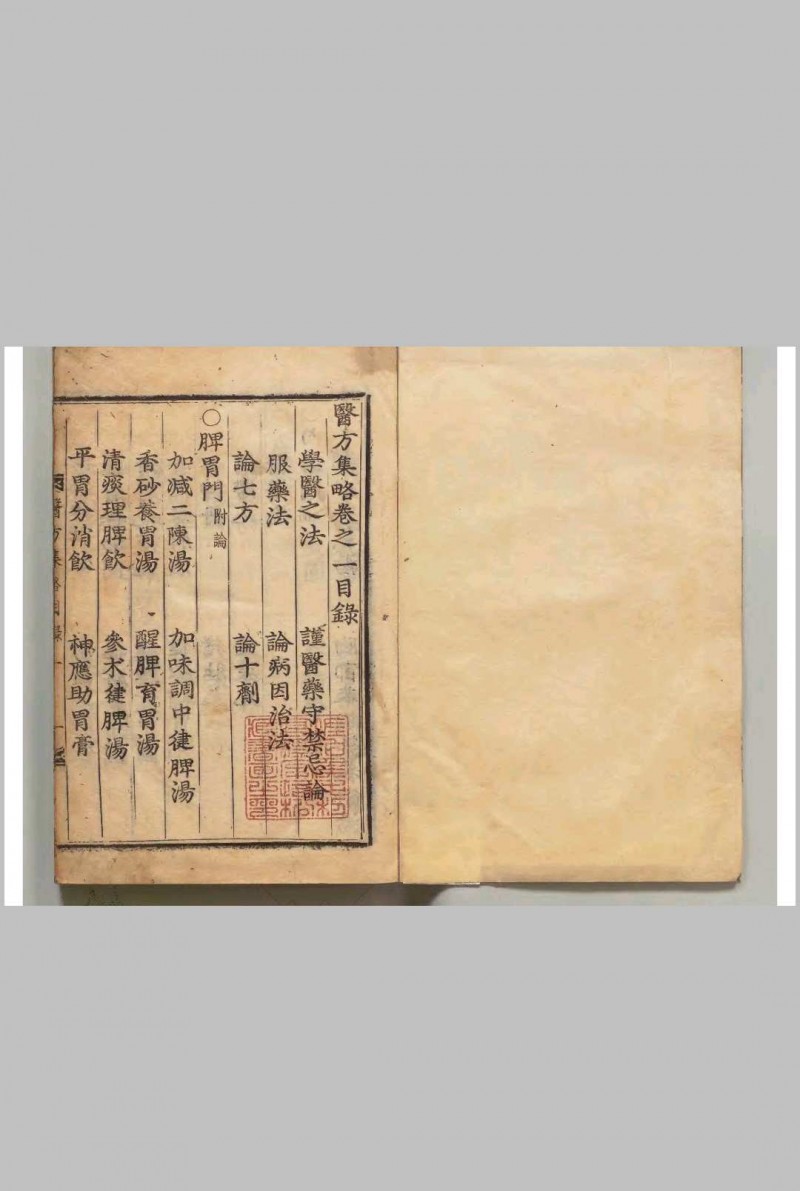 醫方集略卷之一目錄
學醫之法 謹醫藥守禁忌論
服藥法 論病因治法
論七方 論十劑
○脾胃門附論
加減二陳湯 加味調中健脾湯
香砂養胃湯 醒脾育胃湯
清痰理脾飲 參朮健脾湯
平胃分消飲 神應助胃膏
醫方集略目錄